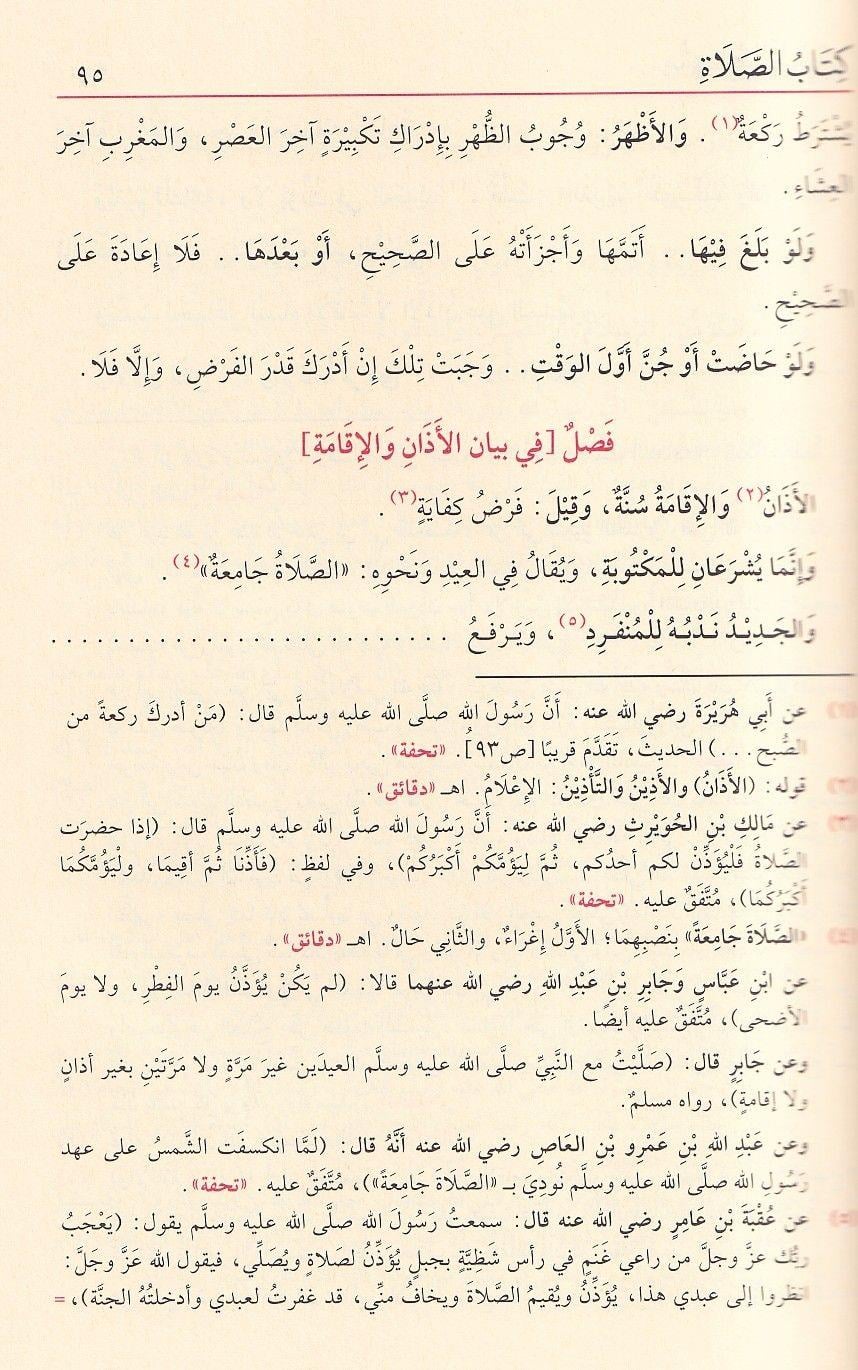 كِتَابُ الصَّلَاةِ ٩٥
يُشْتَرَطُ رَكْعَةٌ(١). وَالأَظْهَرُ: وُجُوبُ الظُّهْرِ بِإِدْرَاكِ تَكْبِيْرَةٍ آخِرَ العَصْرِ، وَالمَغْرِبِ آخِرَ
العِشَاءِ.
وَلَوْ بَلَغَ فِيْهَا.. أَتَمَّهَا وَأَجْزَأَتْهُ عَلَى الصَّحِيْحِ، أَوْ بَعْدَهَا.. فَلَا إِعَادَةَ عَلَى
الصَّحِيْحِ.
وَلَوْ حَاضَتْ أَوْ جُنَّ أَوَّلَ الوَقْتِ.. وَجَبَتْ تِلْكَ إِنْ أَدْرَكَ قَدْرَ الفَرْضِ، وَإِلَّا فَلَا.
فَصْلٌ [فِي بيان الأَذَانِ وَالإِقَامَةِ]
الأَذَانُ(٢) وَالإِقَامَةُ سُنَّةٌ، وَقِيْلَ: فَرْضُ كِفَايَةٍ(٣).
وَإِنَّمَا يُشْرَعَانِ لِلْمَكْتُوبَةِ، وَيُقَالُ فِي العِيْدِ وَنَحْوِهِ: «الصَّلَاةُ جَامِعَةٌ»(٤).
وَالجَدِيْدُ نَدْبُهُ لِلْمُنْفَرِدِ(٥)، وَيَرْفَعُ ..........................
عن أَبِي هُرَيْرَةَ رضي الله عنه: أَنَّ رَسُولَ الله صلَّى الله عليه وسلَّم قال: (مَنْ أدركَ ركعةً من
الصُّبح...) الحديثَ، تَقَدَّمَ قريبًا [ص٩٣]. «تحفة».
(٢) قوله: (الأَذَانُ) والأَذِيْنُ والتَّأْذِيْنُ: الإِعْلَامُ. اهـ «دقائق».
(٣) عن مَالِكِ بْنِ الحُوَيْرِثِ رضي الله عنه: أَنَّ رَسُولَ الله صلَّى الله عليه وسلَّم قال: (إذا حضرَت
الصَّلاةُ فَلْيُؤَذِّنْ لكم أحدُكم، ثُمَّ لِيَؤُمَّكُمْ أَكْبَرُكُمْ)، وفي لفظٍ: (فَأَذِّنَا ثُمَّ أقِيمَا، ولْيَؤُمَّكُمَا
أَكْبَرُكُمَا)، مُتَّفَقٌ عليه. «تحفة».
(٤) «الصَّلَاةَ جَامِعَةً» بِنَصْبِهِمَا؛ الأَوَّلُ إِغْرَاءٌ، والثَّانِي حَالٌ. اهـ «دقائق».
عن ابْنِ عَبَّاسٍ وَجَابِرِ بْنِ عَبْدِ اللهِ رضي الله عنهما قالا: (لم يَكُنْ يُؤَذَّنُ يومَ الفِطْرِ، ولا يومَ
الأضحى)، مُتَّفَقٌ عليه أيضًا.
وعن جَابِرٍ قال: (صَلَّيْتُ مع النَّبِيِّ صلَّى الله عليه وسلَّم العيدَين غيرَ مَرَّةٍ ولا مَرَّتَيْنِ بغير أذانٍ
ولا إقامةٍ)، رواه مسلمٌ.
وعن عَبْدِ اللهِ بْنِ عَمْرِو بْنِ العَاصِ رضي الله عنه أَنَّهُ قال: (لَمَّا انكسفَت الشَّمسُ على عهد
رَسُولِ الله صلَّى الله عليه وسلَّم نُودِيَ بـ «الصَّلَاةَ جَامِعَةً»)، مُتَّفَقٌ عليه. «تحفة».
(٥) عن عُقْبَةَ بْنِ عَامِرٍ رضي الله عنه قال: سمعتُ رَسُولَ الله صلَّى الله عليه وسلَّم يقول: (يَعْجَبُ
ربُّك عزَّ وجلَّ من راعي غَنَمٍ في رأس شَظِيَّةٍ بجبلٍ يُؤَذِّنُ لصَلاةٍ ويُصَلِّي، فيقول الله عَزَّ وجَلَّ:
انظروا إلى عبدي هذا، يُؤَذِّنُ ويُقيمُ الصَّلاةَ ويخافُ منِّي، قد غفرتُ لعبدي وأدخلتُهُ الجنَّة)، =